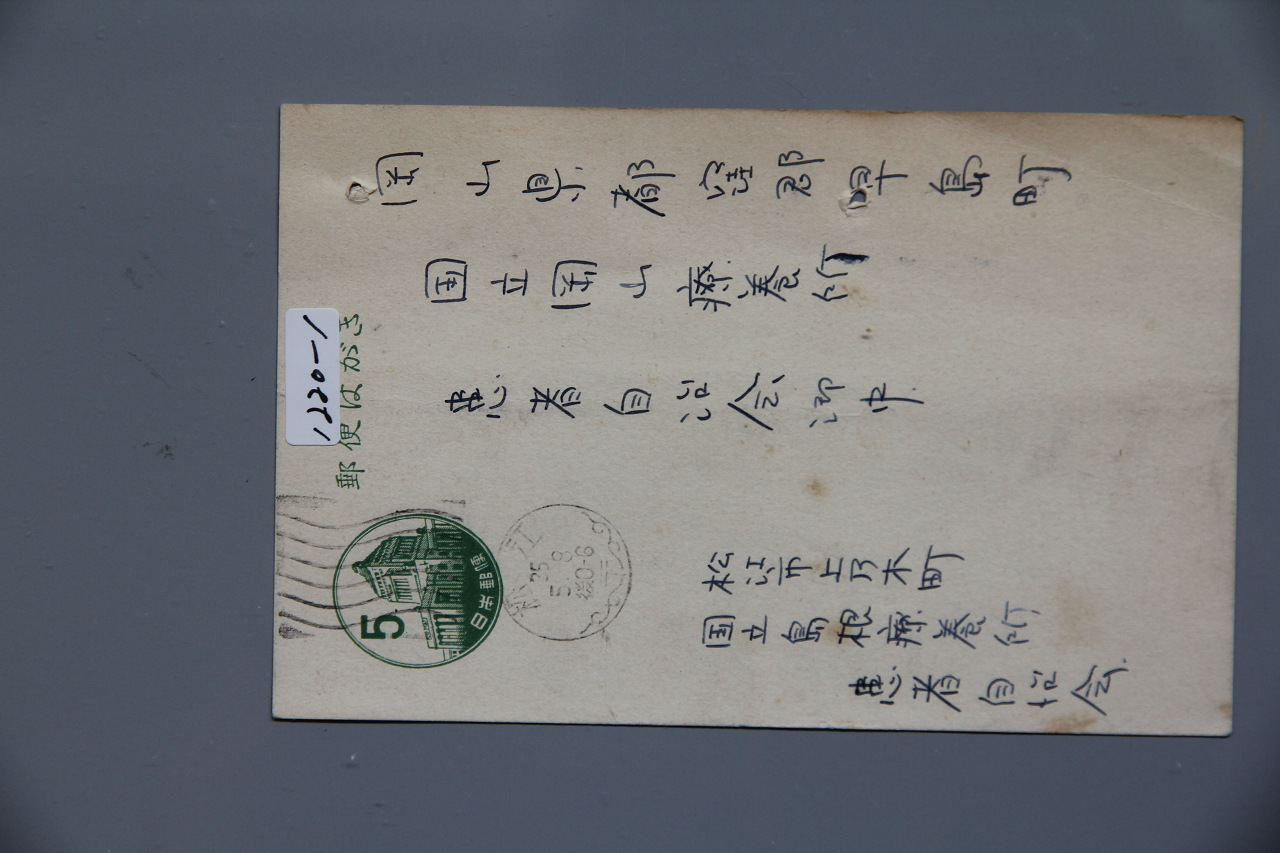 1220-1
郵便はがき
5
日本郵便
松江
35
5. 8
后0-6
岡山県都窪郡早島町
国立岡山療養所
患者自治会御中
松江市上乃木町
国立島根療養所
患者自治会